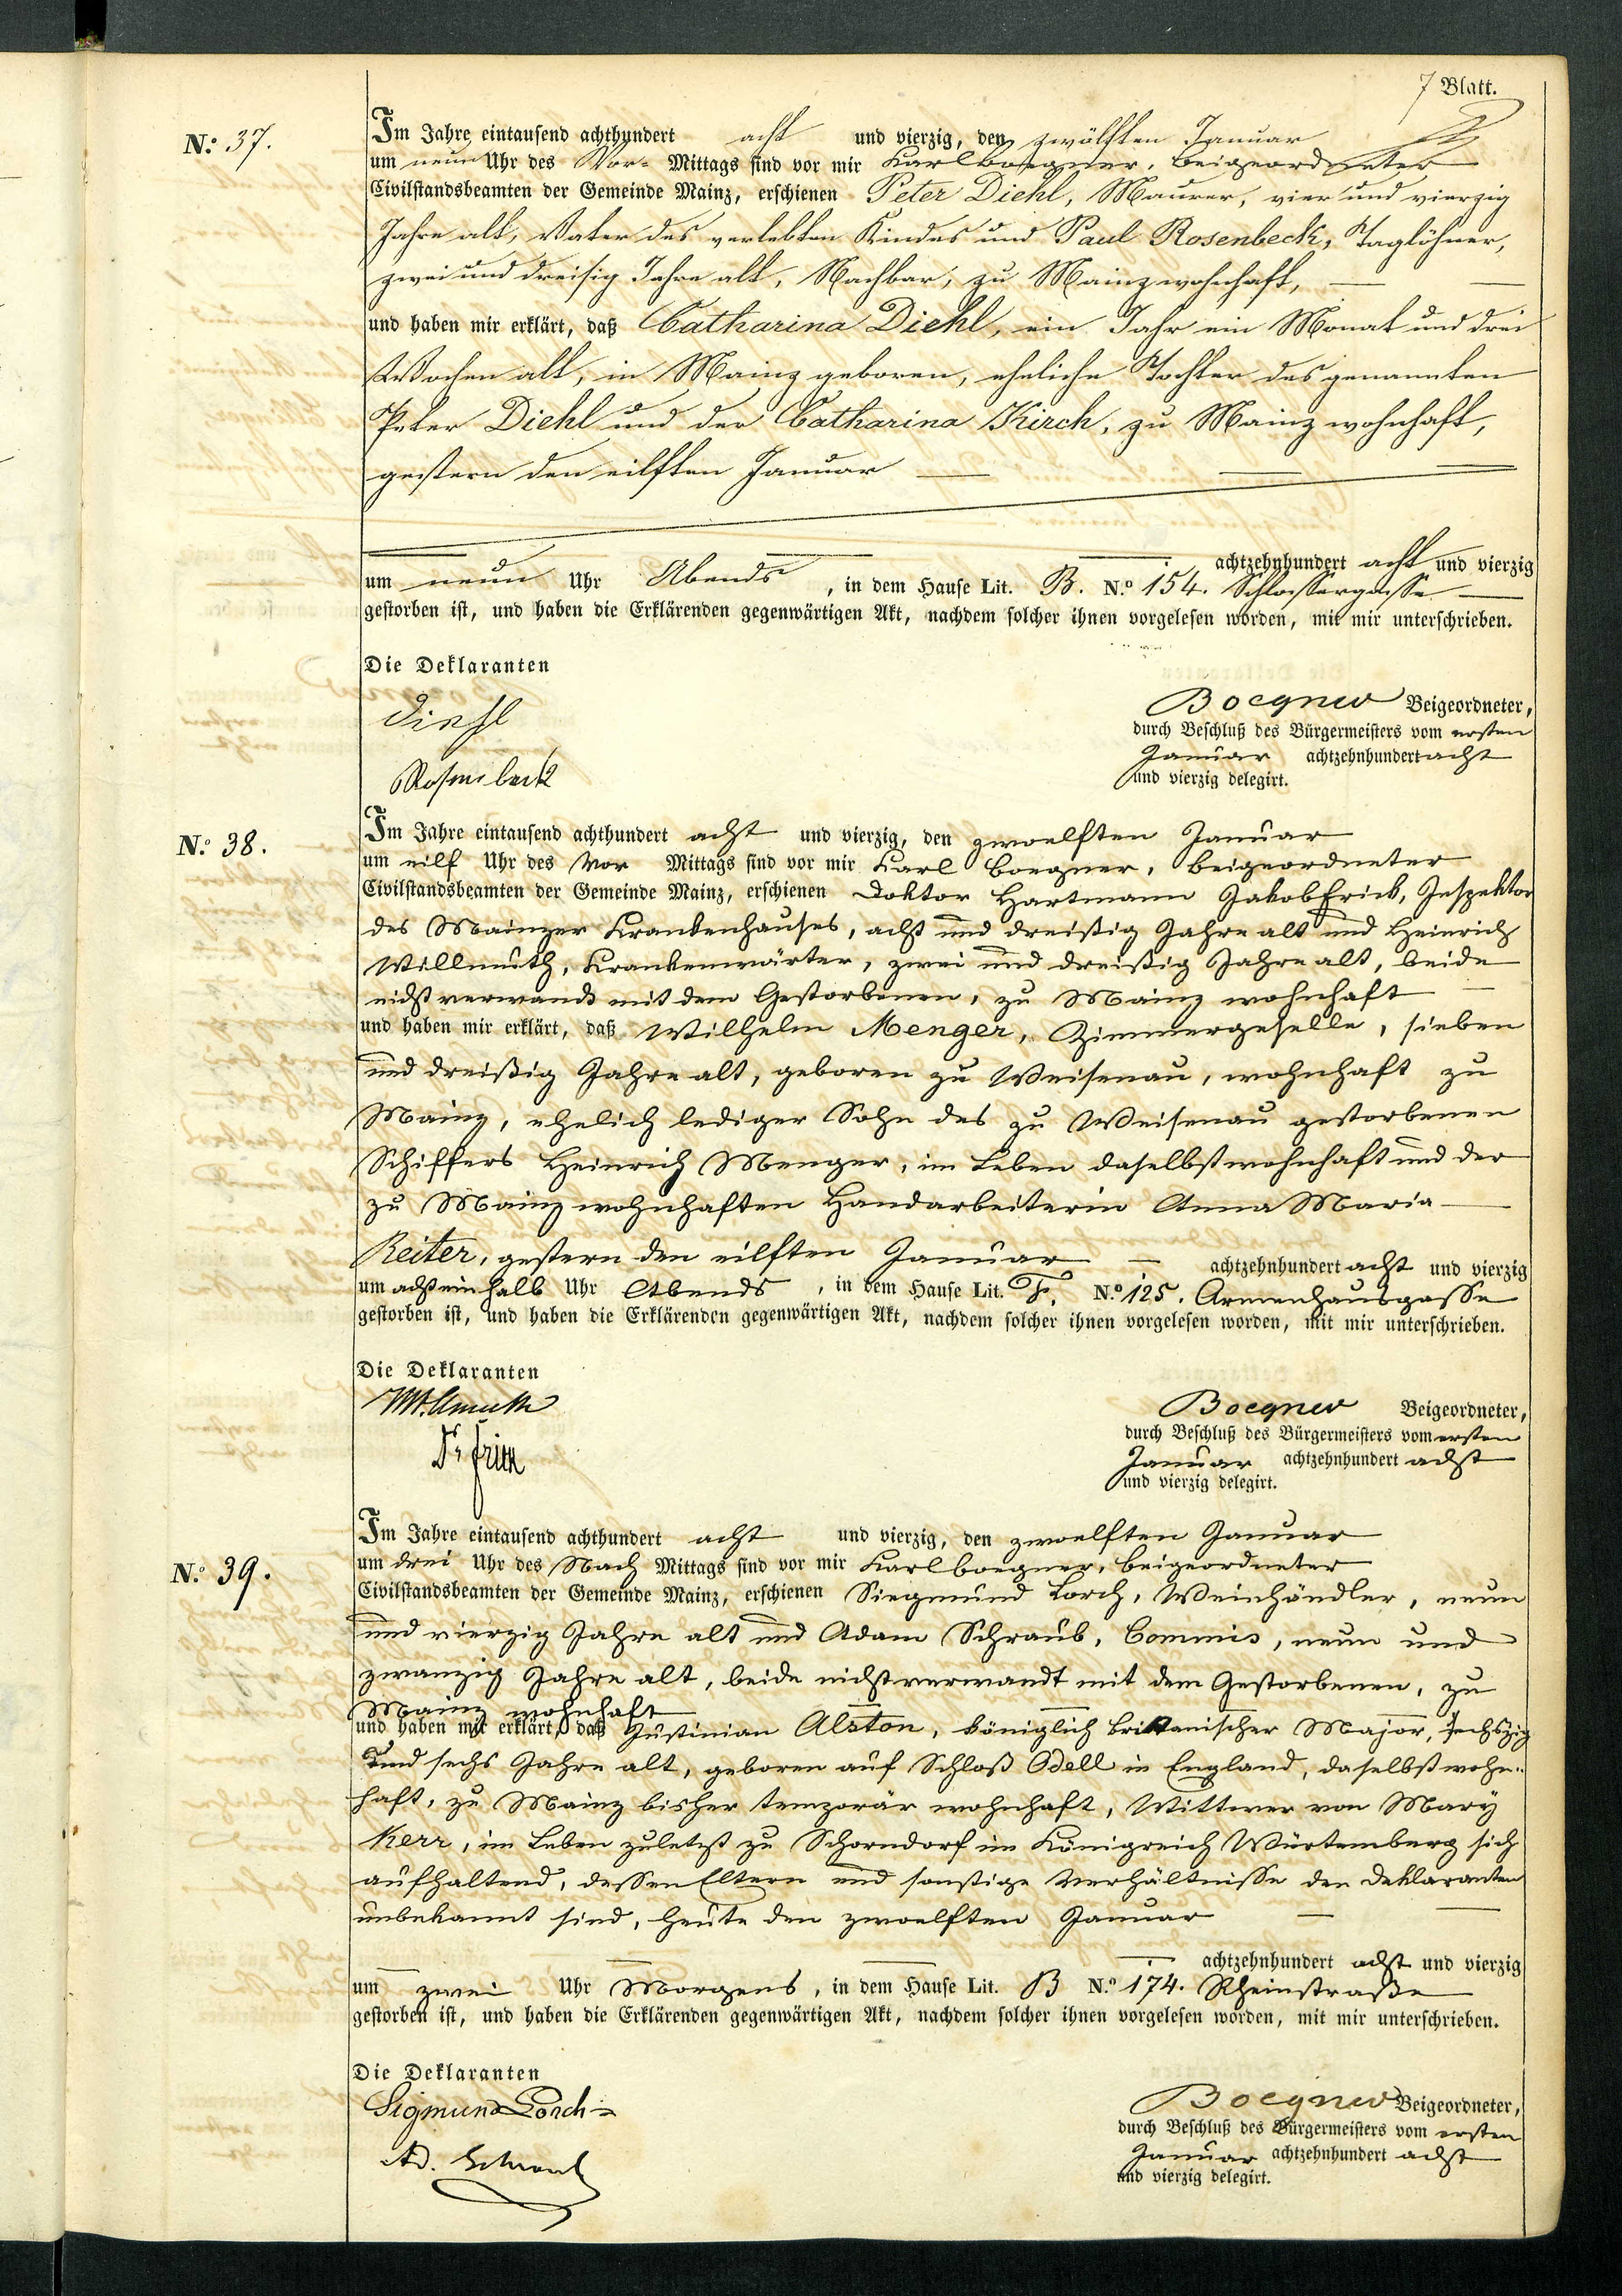 7 Blatt.
N.º 37.
Im Jahre eintausend achthundert acht und vierzig, den zwölften Januar
um neun Uhr des Vor- Mittags sind vor mir Karl Boegner, Beigeordneter
Civilstandsbeamten der Gemeinde Mainz, erschienen Peter Diehl, Maurer, vier und vierzig
Jahre alt, Vater des verlebten Kindes und Paul Rosenbeck, Taglöhner,
zwei und dreisig Jahre alt, Nachbar, zu Mainz wohnhaft,
und haben mir erklärt, daß Catharina Diehl, ein Jahr ein Monat und drei
Wochen alt, in Mainz geboren, eheliche Tochter des genannten
Peter Diehl und der Catharina Kirch, zu Mainz wohnhaft,
gestern den eilften Januar
achtzehnhundert acht und vierzig
um neun Uhr Abends , in dem Hause Lit. B. N.º 154. Schlossergasse
gestorben ist, und haben die Erklärenden gegenwärtigen Akt, nachdem solcher ihnen vorgelesen worden, mit mir unterschrieben.
Die Deklaranten
Diehl
Rosenbeck
Boegner Beigeordneter,
durch Beschluß des Bürgermeisters vom ersten
Januar achtzehnhundert acht
und vierzig delegirt.
N.º 38.
Im Jahre eintausend achthundert acht und vierzig, den zwoelften Januar
um eilf Uhr des Vor Mittags sind vor mir Karl Boegner, Beigeordneter
Civilstandsbeamten der Gemeinde Mainz, erschienen Doktor Hartmann Jakob Frick, Inspektor
des Mainzer Krankenhauses, acht und dreißig Jahre alt und Heinrich
Willmuth, Krankenwärter, zwei und dreißig Jahre alt, beide
nicht verwandt mit dem Gestorbenen, zu Mainz wohnhaft
und haben mir erklärt, daß Wilhelm Menger, Zimmergeselle, sieben
und dreißig Jahre alt, geboren zu Weisenau, wohnhaft zu
Mainz, ehelich lediger Sohn des zu Weisenau gestorbenen
Schiffers Heinrich Menger, im Leben daselbst wohnhaft und der
zu Mainz wohnhaften Handarbeiterin Anna Maria
Reiter, gestern den eilften Januar achtzehnhundert acht und vierzig
um acht einhalb Uhr Abends , in dem Hause Lit. F. N.º 125. Armenhausgasse
gestorben ist, und haben die Erklärenden gegenwärtigen Akt, nachdem solcher ihnen vorgelesen worden, mit mir unterschrieben.
Die Deklaranten
Willmuth
Dr Frick
Boegner Beigeordneter,
durch Beschluß des Bürgermeisters vom ersten
Januar achtzehnhundert acht
und vierzig delegirt.
N.º 39.
Im Jahre eintausend achthundert acht und vierzig, den zwoelften Januar
um drei Uhr des Nach Mittags sind vor mir Karl Boegner, Beigeordneter
Civilstandsbeamten der Gemeinde Mainz, erschienen Siegmund Lorch, Weinhändler, neun
und vierzig Jahre alt und Adam Schraub, Commis, neun und
zwanzig Jahre alt, beide nicht verwandt mit dem Gestorbenen, zu
Mainz wohnhaft
und haben mir erklärt, daß Justinian Alston, königlich brittanischer Major, sechszig
und sechs Jahre alt, geboren auf Schloß Odell in England, daselbst wohn-
haft, zu Mainz bisher temporär wohnhaft, Wittwer von Mary
Kerr, im Leben zuletzt zu Schorndorf im Königreich Würtemberg sich
aufhaltend, dessen Eltern und sonstige Verhältnisse den Deklaranten
unbekannt sind, heute den zwoelften Januar
achtzehnhundert acht und vierzig
um zwei Uhr Morgens , in dem Hause Lit. B N.º 174. Rheinstraße
gestorben ist, und haben die Erklärenden gegenwärtigen Akt, nachdem solcher ihnen vorgelesen worden, mit mir unterschrieben.
Die Deklaranten
Sigmund Lorch
Ad. Schraub
Boegner Beigeordneter,
durch Beschluß des Bürgermeisters vom ersten
Januar achtzehnhundert acht
und vierzig delegirt.